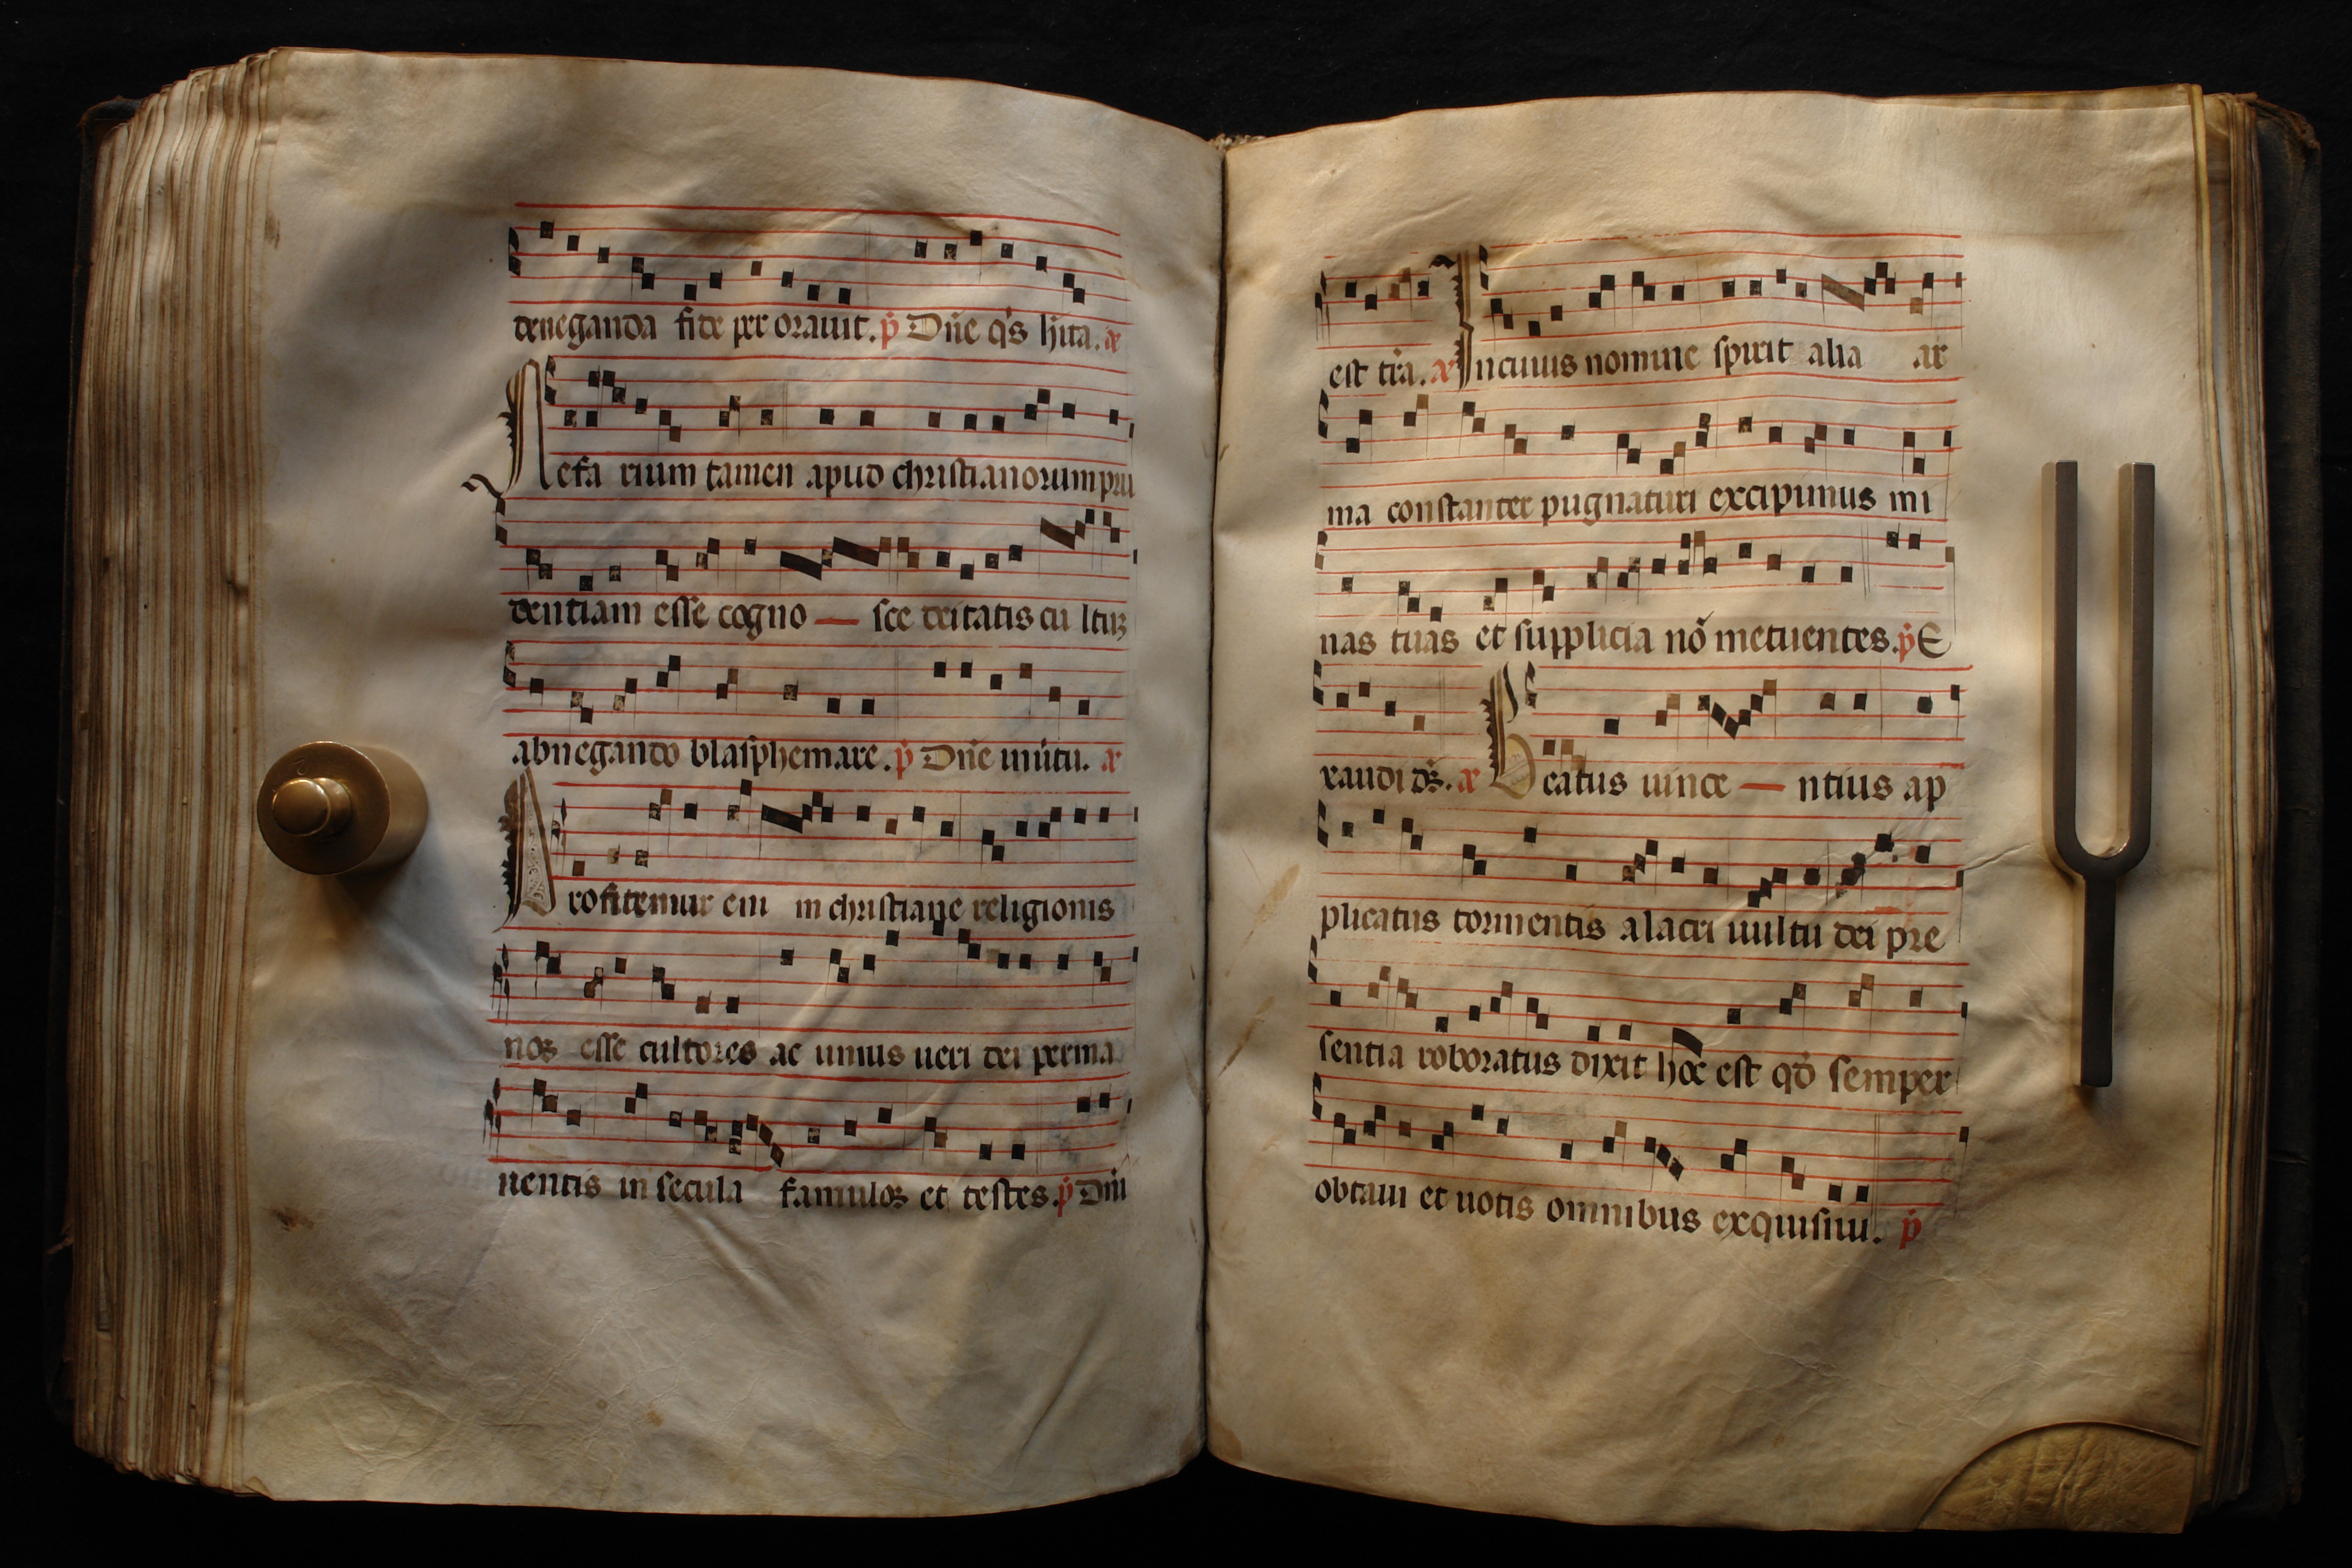 deneganda fide per orauit. p̄ Dñe q̄s hĩta. æ
Nefa rium tamen apud christianorum pru
dentiam esse cogno — sce deitatis cu ltuꝝ
abnegando blasphemare. p̄ Dñe
Profitemur em in christiane religionis
noꝝ esse cultores ac unius ueri dei perma
nentis in secula famuloꝝ et testes. p̄ Dñi
est tr̄a. æ In cuius nomine spirit alia ar
ma constanter pugnaturi excipimus mi
nas tuas et supplicia nō metuentes. p̄ E
xaudi ds̄. æ Beatus uince — ntius ap
plicatus tormentis alacri uultu dei pre
sentia roboratus dixit hoc est qd̄ semper
obtaui et uotis omnibus exquisiui. p̄